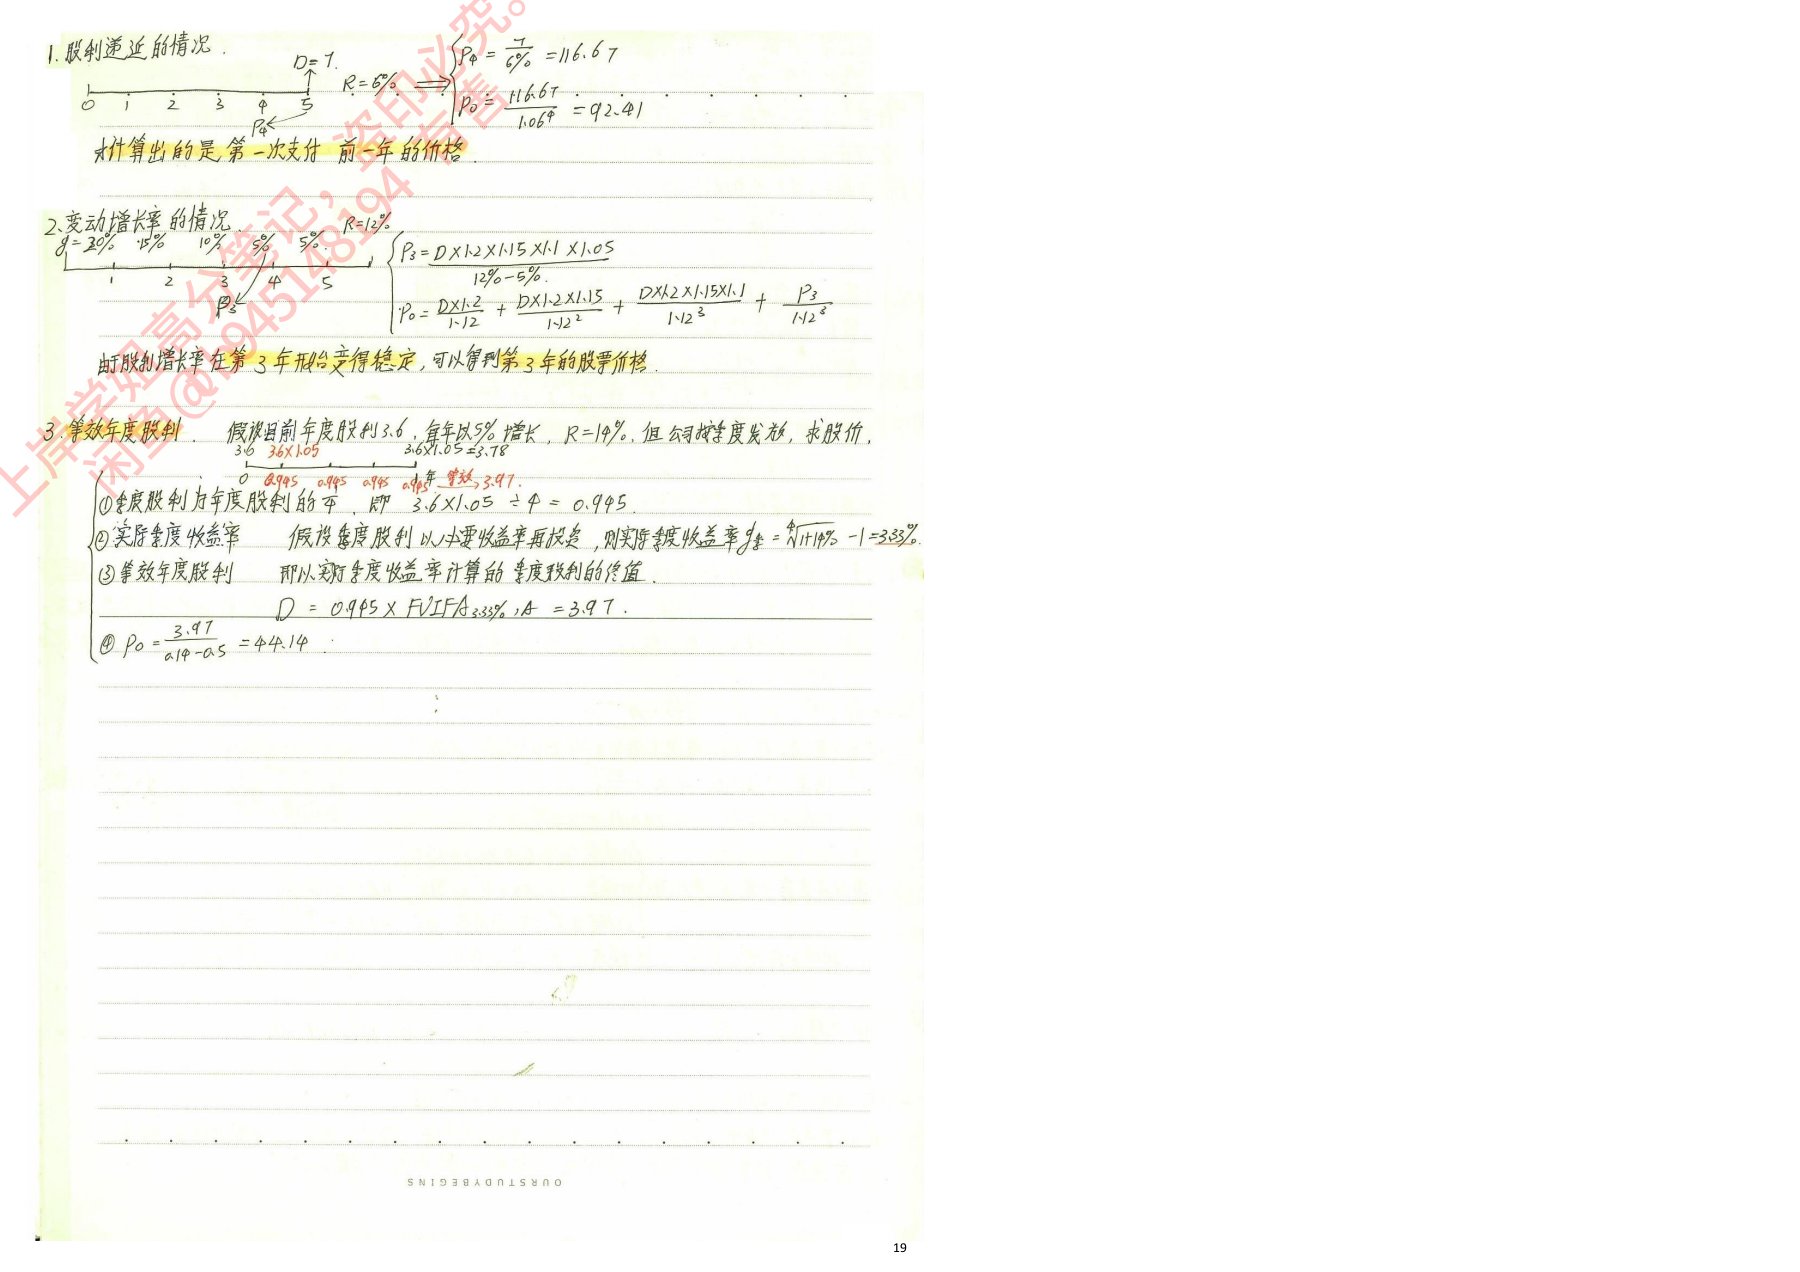 1. 股利递延的情况.
D=7.
0 1 2 3 4 5
P4
R=6% ⟹
P4 = 7/6% =116.67
P0 = 116.67/1.06⁴ = 92.41
才计算出的是,第一次支付 前一年的价格.
2、变动增长率的情况.
R=12%
g=20% 15% 10% 5% 5%.
1 2 3 4 5
P3
P3 = D×1.2×1.15×1.1×1.05/12%-5%.
P0 = D×1.2/1.12 + D×1.2×1.15/1.12² + D×1.2×1.15×1.1/1.12³ + P3/1.12³
由于股利增长率在第3年开始变得稳定,可以得到第3年的股票价格.
3.等效年度股利. 假设目前年度股利3.6,每年以5%增长,R=14%.但公司按季度发放,求股价.
3.6 3.6×1.05 3.6×1.05=3.78
0 0.945 0.945 0.945 0.945 1年 等效 3.97.
①季度股利为年度股利的 即 3.6×1.05÷4 = 0.945.
②实际季度收益率 假设季度股利以必要收益率再投资,则实际季度收益率g季 = ⁴√1+14% -1=3.33%.
③等效年度股利 即以实际季度收益率计算的季度股利的终值.
D = 0.945× FVIFA3.33%,4 = 3.97.
④ P0 = 3.97/0.14-0.5 =44.14
OURSTUDYBEGINS
19
上岸学姐高分笔记,盗印必究。